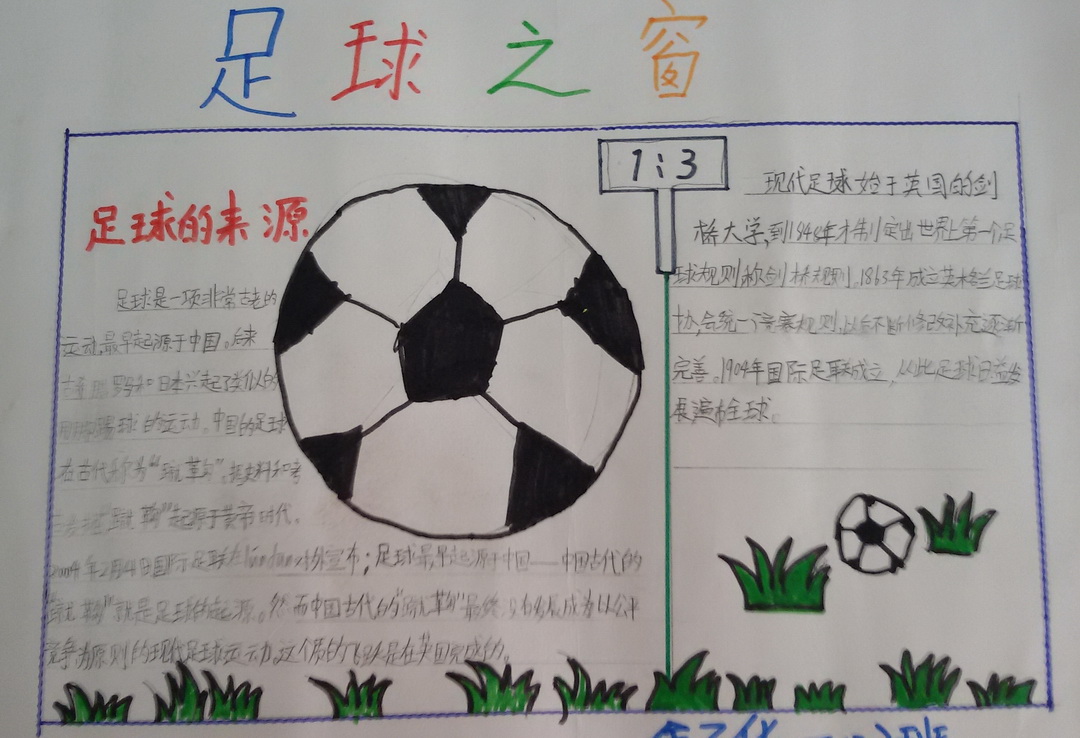 足球之窗
1:3
足球的来源
足球是一项非常古老的
运动,最早起源于中国。后来
日本兴起了类似的
球的运动。中国的足球
在古代称为“蹴革匊”。据史料和考
起源于黄帝时代。
2004年2月4日国际足联在london对外宣布;足球最早起源于中国——中国古代的
就是足球的起源。然而中国古代的“蹴鞠”最终没有发展成为以公平
竞争为原则的现代足球运动。这个质的飞跃是在英国完成的。
现代足球始于英国的剑
桥大学,到1848年才制定出世界上第一个足
球规则称剑桥规则。1863年成立英格兰足球
协会统一了竞赛规则,以后不断修改补充逐渐
完善。1904年国际足联成立,从此足球日益发
展遍布全球。
班